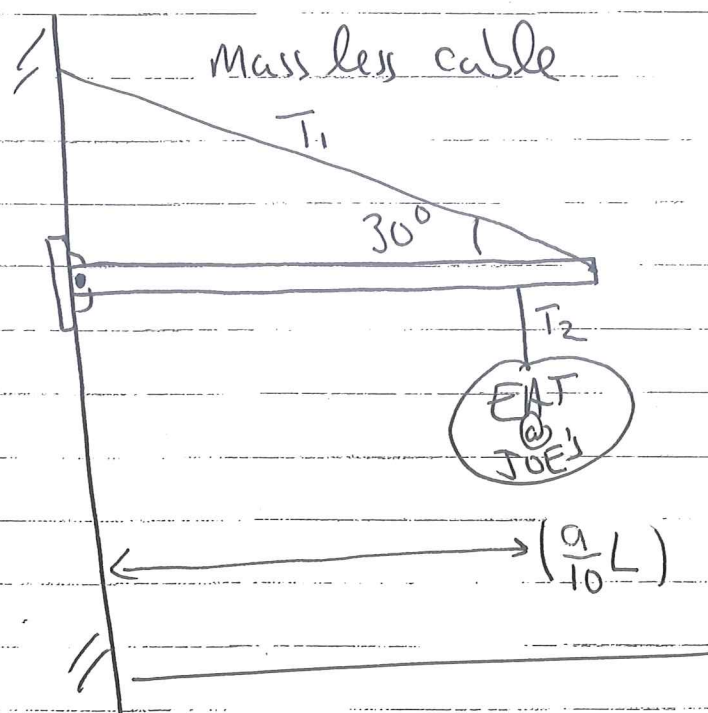 Mass less cable
T₁
30°
T₂
EAT
@
JOE's
(9/10 L)